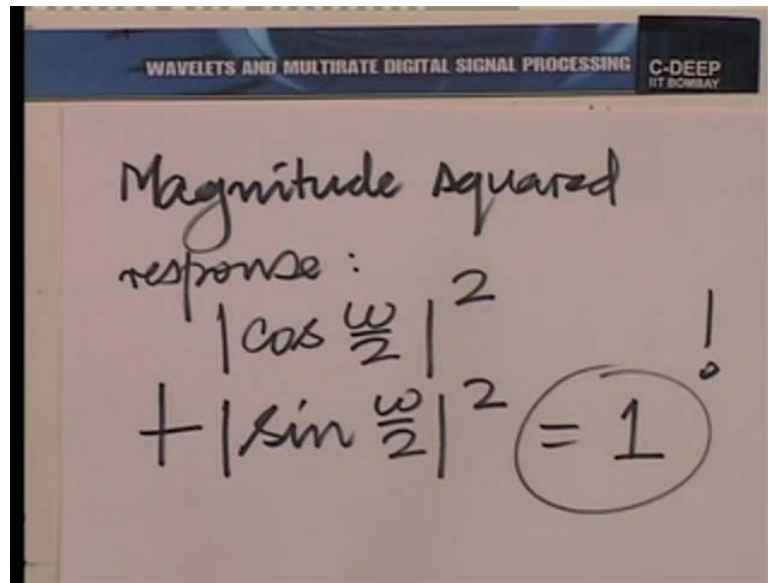 WAVELETS AND MULTIRATE DIGITAL SIGNAL PROCESSING
C-DEEP
IIT BOMBAY
Magnitude squared
response :
|cos ω/2|²
+ |sin ω/2|² = 1 !